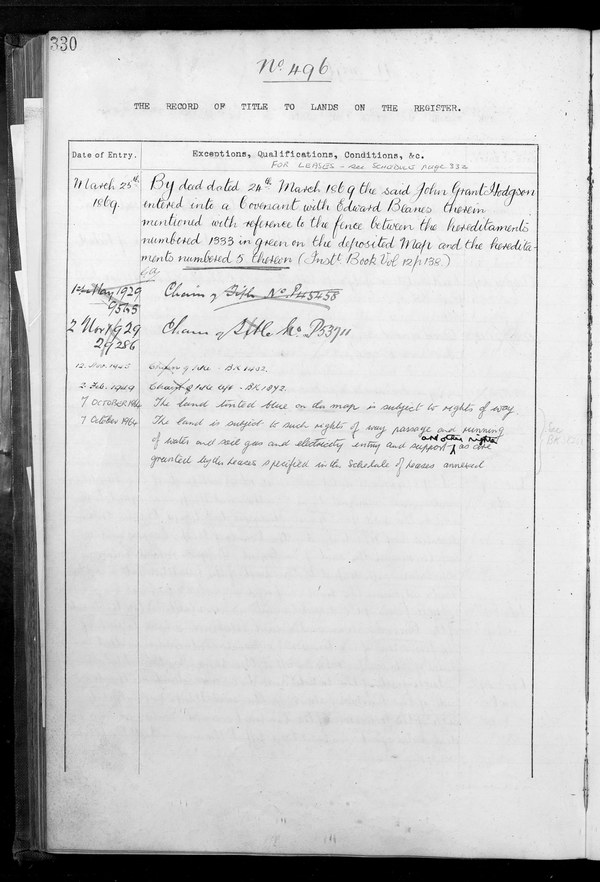 330
No. 496
THE RECORD OF TITLE TO LANDS ON THE REGISTER.
Date of Entry. Exceptions, Qualifications, Conditions, &c.
FOR LEASES - see SCHEDULE page 332
March 25th 1869. By deed dated 24th March 1869 the said John Grant Hodgson
entered into a Covenant with Edward Beanes therein
mentioned with reference to the fence between the hereditaments
numbered 1333 in green on the deposited Map and the heredita-
ments numbered 5 thereon (Inst. Book Vol. 12 p 138.)
May 1929 Charge of Title No. P45458
9565
2 Nov 1929 Charge of Title No. P53911
29286
12. Nov. 1943
2. Feb. 1949
7 OCTOBER 1964 The land tinted blue on the map is subject to rights of way
7 October 1964 The land is subject to such rights of way passage and running
of water and soil gas and electricity entry and support and other rights as are
granted by the Leases specified in the Schedule of Leases annexed